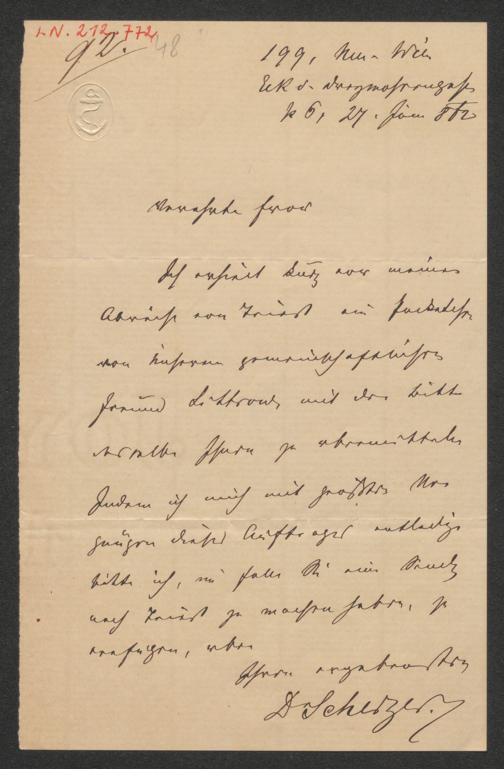 I.N. 212.772
92.
48
199, Wien
K 5, 27. Juni
Verehrte Frau
Ich erhielt kurz vor meiner
Abreise von Triest ein Packetchen
von unserem gemeinschaftlichen
Freund Littrow mit der Bitte
dasselbe Ihnen zu übermitteln
Indem ich mich mit größtem Ver
gnügen dieses Auftrages entledige
bitte ich, im Falle Sie eine Sendg
nach Triest zu machen haben, zu
verfügen, über
Ihren ergebensten
Dr Scherzer.